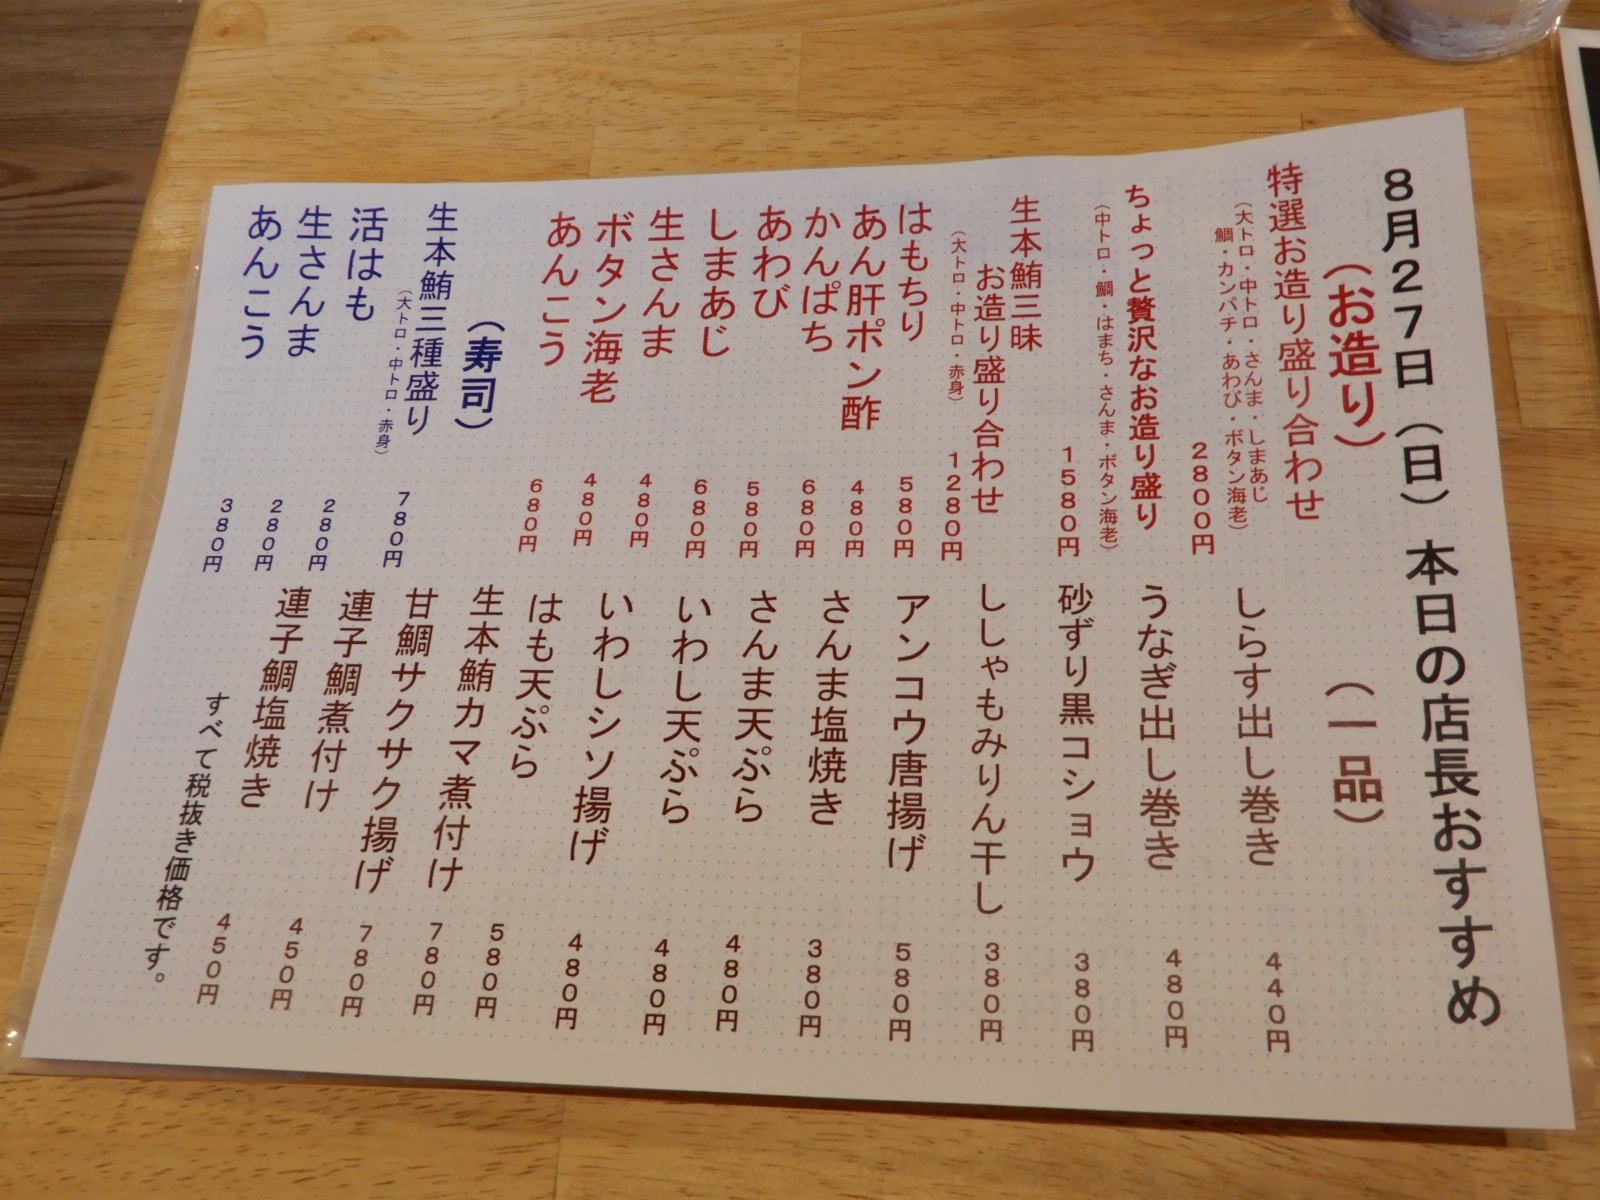 8月27日(日) 本日の店長おすすめ
(お造り)
特選お造り盛り合わせ
(大トロ・中トロ・さんま・しまあじ
鯛・カンパチ・あわび・ボタン海老)
2800円
ちょっと贅沢なお造り盛り
(中トロ・鯛・はまち・さんま・ボタン海老)
1580円
生本鮪三昧
お造り盛り合わせ
(大トロ・中トロ・赤身)
1280円
はもちり 580円
あん肝ポン酢 480円
かんぱち 680円
あわび 580円
しまあじ 680円
生さんま 480円
ボタン海老 480円
あんこう 680円
(寿司)
生本鮪三種盛り
(大トロ・中トロ・赤身)
780円
活はも 280円
生さんま 280円
あんこう 380円
(一品)
しらす出し巻き 440円
うなぎ出し巻き 480円
砂ずり黒コショウ 380円
ししゃもみりん干し 380円
アンコウ唐揚げ 580円
さんま塩焼き 380円
さんま天ぷら 480円
いわし天ぷら 480円
いわしシソ揚げ 480円
はも天ぷら 580円
生本鮪カマ煮付け 780円
甘鯛サクサク揚げ 780円
連子鯛煮付け 450円
連子鯛塩焼き 450円
すべて税抜き価格です。